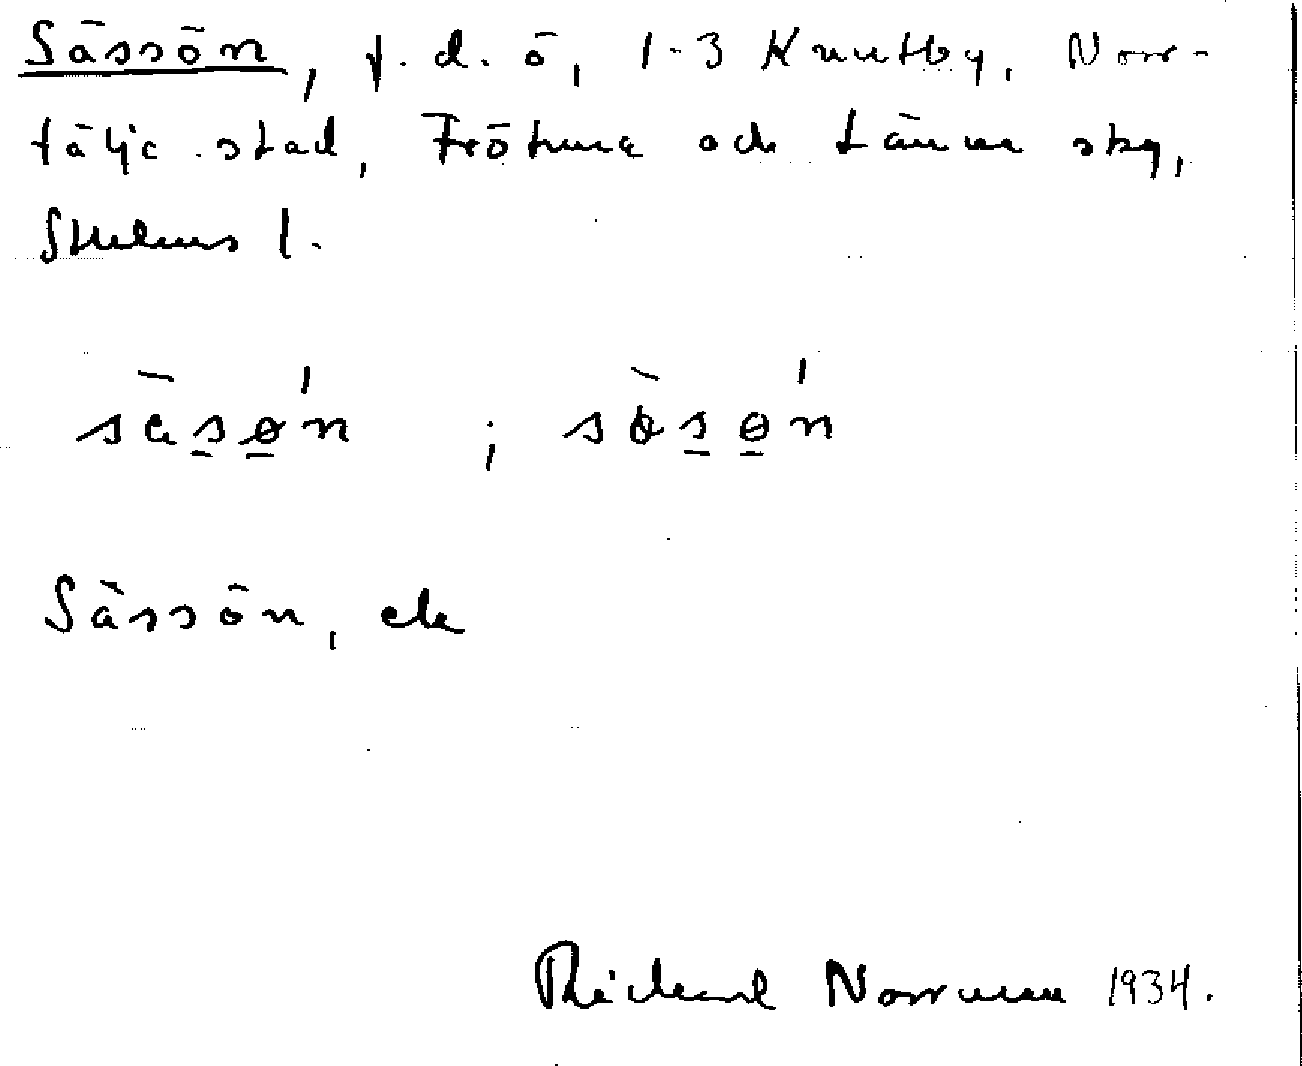 Sässön, f. d. ö, 1-3 Knutby, Norr-
tälje stad, Frötuna och Länna skg,
Sthlms l.
säsøn ; søsøn
Sässön, ek
Rickard Norrman 1934.